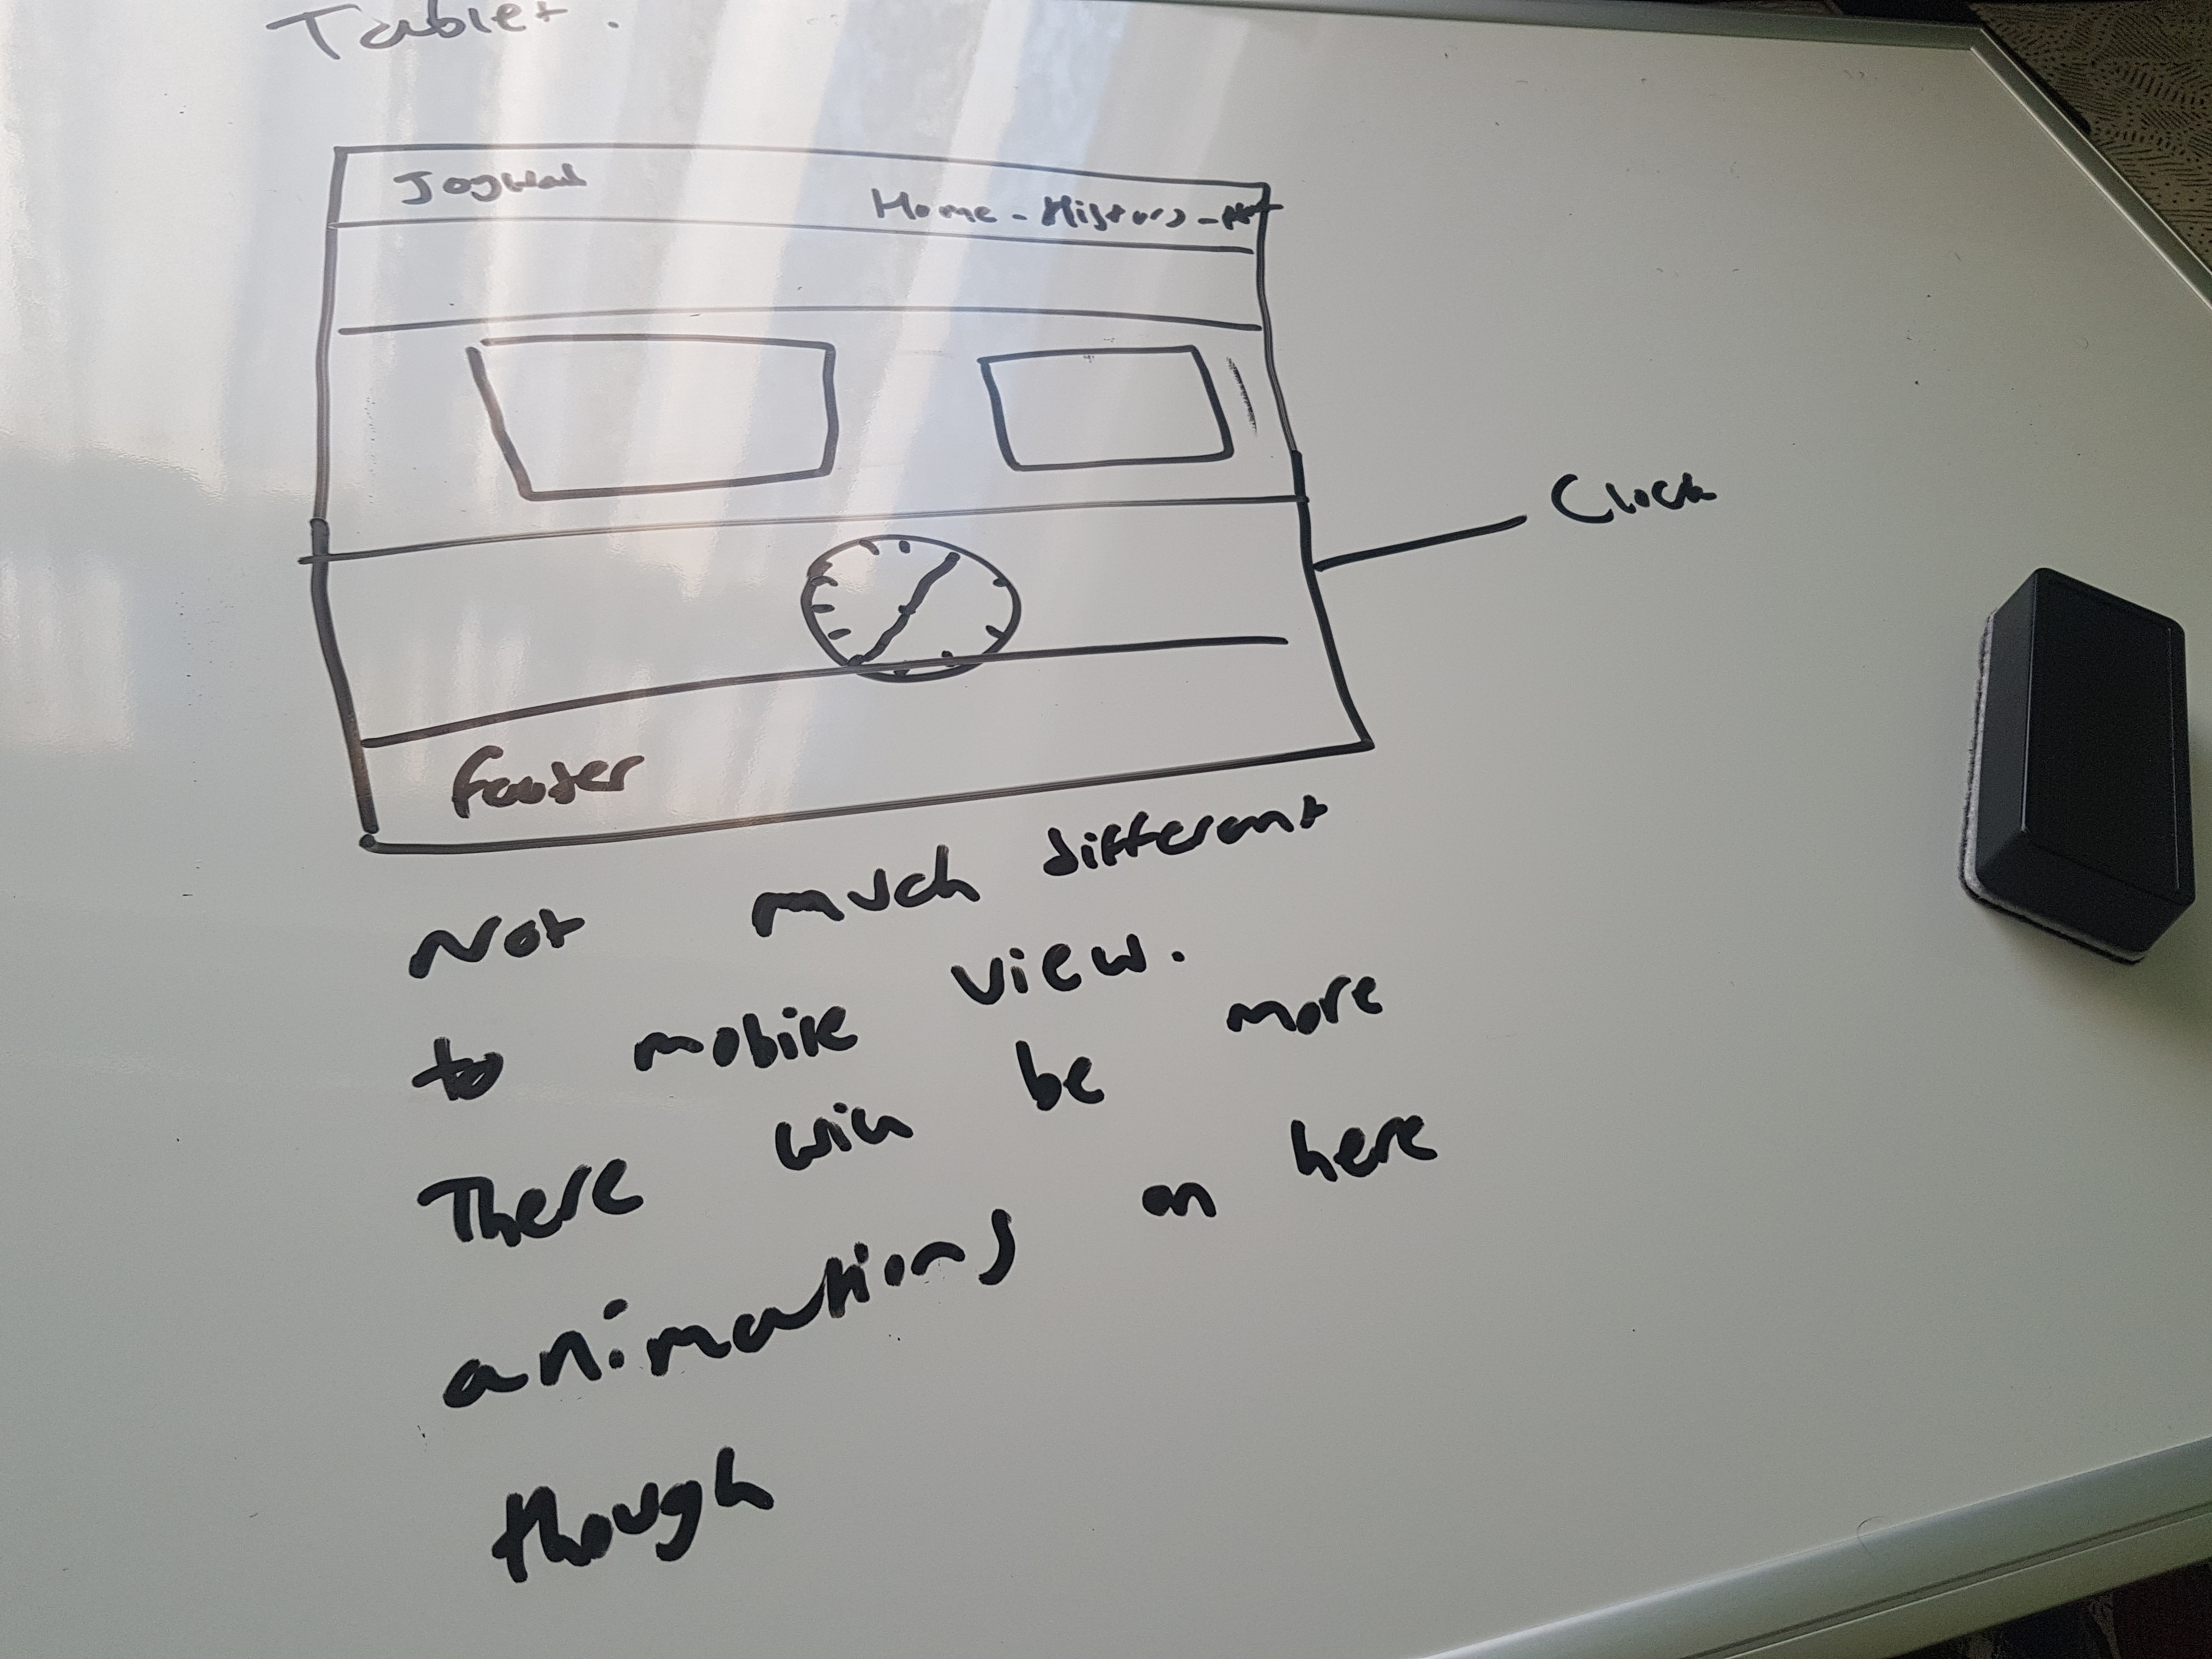 Tablet.
Home - History -
Clock
footer
Not much different
to mobile view.
There will be more
animations on here
though